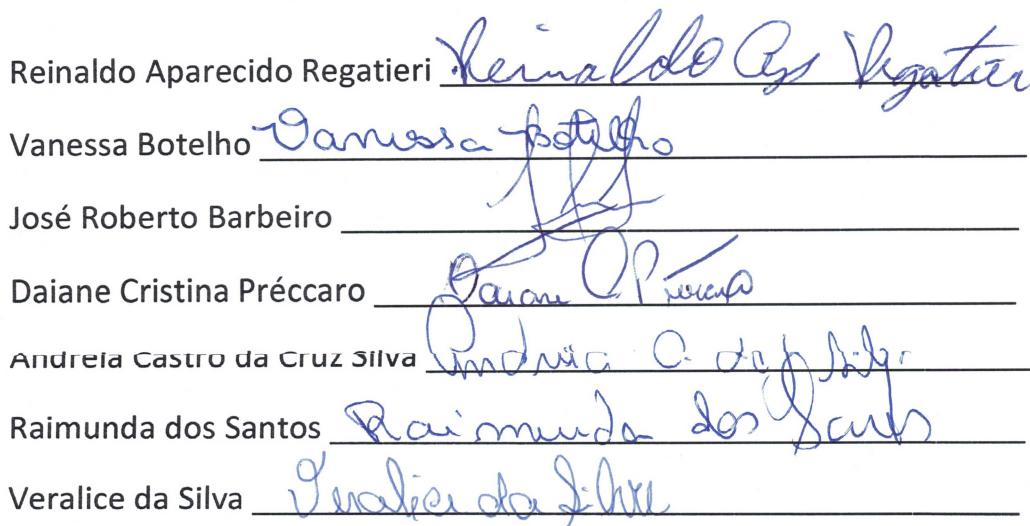 Reinaldo Aparecido Regatieri Reinaldo Ap Regatieri
Vanessa Botelho Vanessa Botelho
José Roberto Barbeiro
Daiane Cristina Préccaro Daiane C
Andreia Castro da Cruz Silva Andreia C. da Silva
Raimunda dos Santos Raimunda dos Santos
Veralice da Silva Veralice da Silva